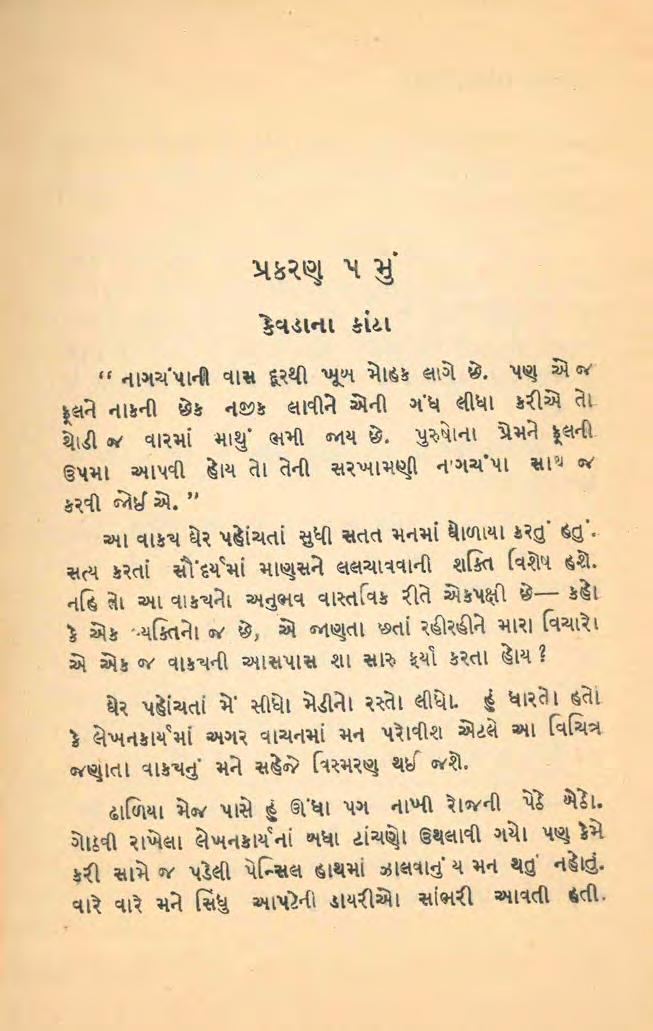 પ્રકરણ ૫ મું
કેવડાના કાંટા
“ નાગચંપાની વાસ દૂરથી ખૂબ મોહક લાગે છે. પણ એ જ
ફૂલને નાકની છેક નજીક લાવીને એની ગંધ લીધા કરીએ તો
થોડી જ વારમાં માથું ભમી જાય છે. પુરુષોના પ્રેમને ફૂલની
ઉપમા આપવી હોય તો તેની સરખામણી નાગચંપા સાથ જ
કરવી જોઈએ. ”
આ વાક્ય ઘેર પહોંચતાં સુધી સતત મનમાં ઘોળાયા કરતું હતું.
સત્ય કરતાં સૌંદર્યમાં માણસને લલચાવવાની શક્તિ વિશેષ હશે.
નહિ તો આ વાક્યનો અનુભવ વાસ્તવિક રીતે એકપક્ષી છે— કહો
કે એક વ્યક્તિનો જ છે, એ જાણતા છતાં રહીરહીને મારા વિચારો
એ એક જ વાક્યની આસપાસ શા સારુ ફર્યા કરતા હોય ?
ઘેર પહોંચતાં મેં સીધો મેડીનો રસ્તો લીધો. હું ધારતો હતો
કે લેખનકાર્યમાં અગર વાચનમાં મન પરોવીશ એટલે આ વિચિત્ર
જણાતા વાક્યનું મને સહેજે વિસ્મરણ થઈ જશે.
ઢાળિયા મેજ પાસે હું ઊંધા પગ નાખી રોજની પેઠે બેઠો.
ગોઠવી રાખેલા લેખનકાર્યનાં બધા ટાંચણો ઉથલાવી ગયો પણ કેમે
કરી સામે જ પડેલી પેન્સિલ હાથમાં ઝાલવાનું ય મન થતું નહોતું.
વારે વારે મને સિંધુ આપટેની ડાયરીઓ સાંભરી આવતી હતી.